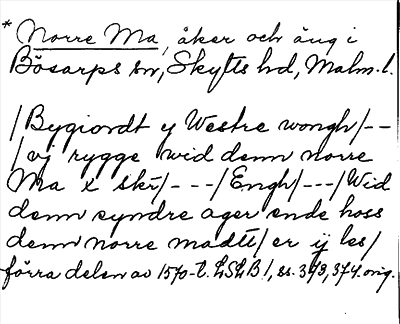 * Norre Ma, åker och äng i
Bösarps sn, Skytts hd, Malm. l.
/Bygiordt y Westre wongh/--
/vj rygge wid denn norre
Ma x skr/---/Engh/---/Wid
denn syndre ager ende hoss
denn norre madtt/er ÿ les/
förra delen av 1570-t. LSLB 1, ss. 373, 374. orig.